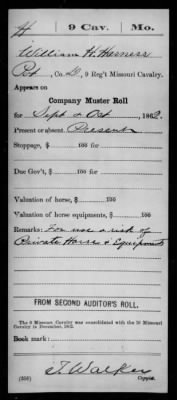 H | 9 Cav. | Mo.
William H. Harness
Pvt, Co. G, 9 Reg't Missouri Cavalry.
Appears on
Company Muster Roll
for Sept & Oct, 1862.
Present or absent. Present
Stoppage, $ 100 for
Due Gov't, $ 100 for
Valuation of horse, $ 100
Valuation of horse equipments, $ 100
Remarks: For use & risk of
Private Horse & Equipments
FROM SECOND AUDITOR'S ROLL.
The 9 Missouri Cavalry was consolidated with the 10 Missouri
Cavalry in December, 1862.
Book mark:
T. Walker
(358) Copyist.